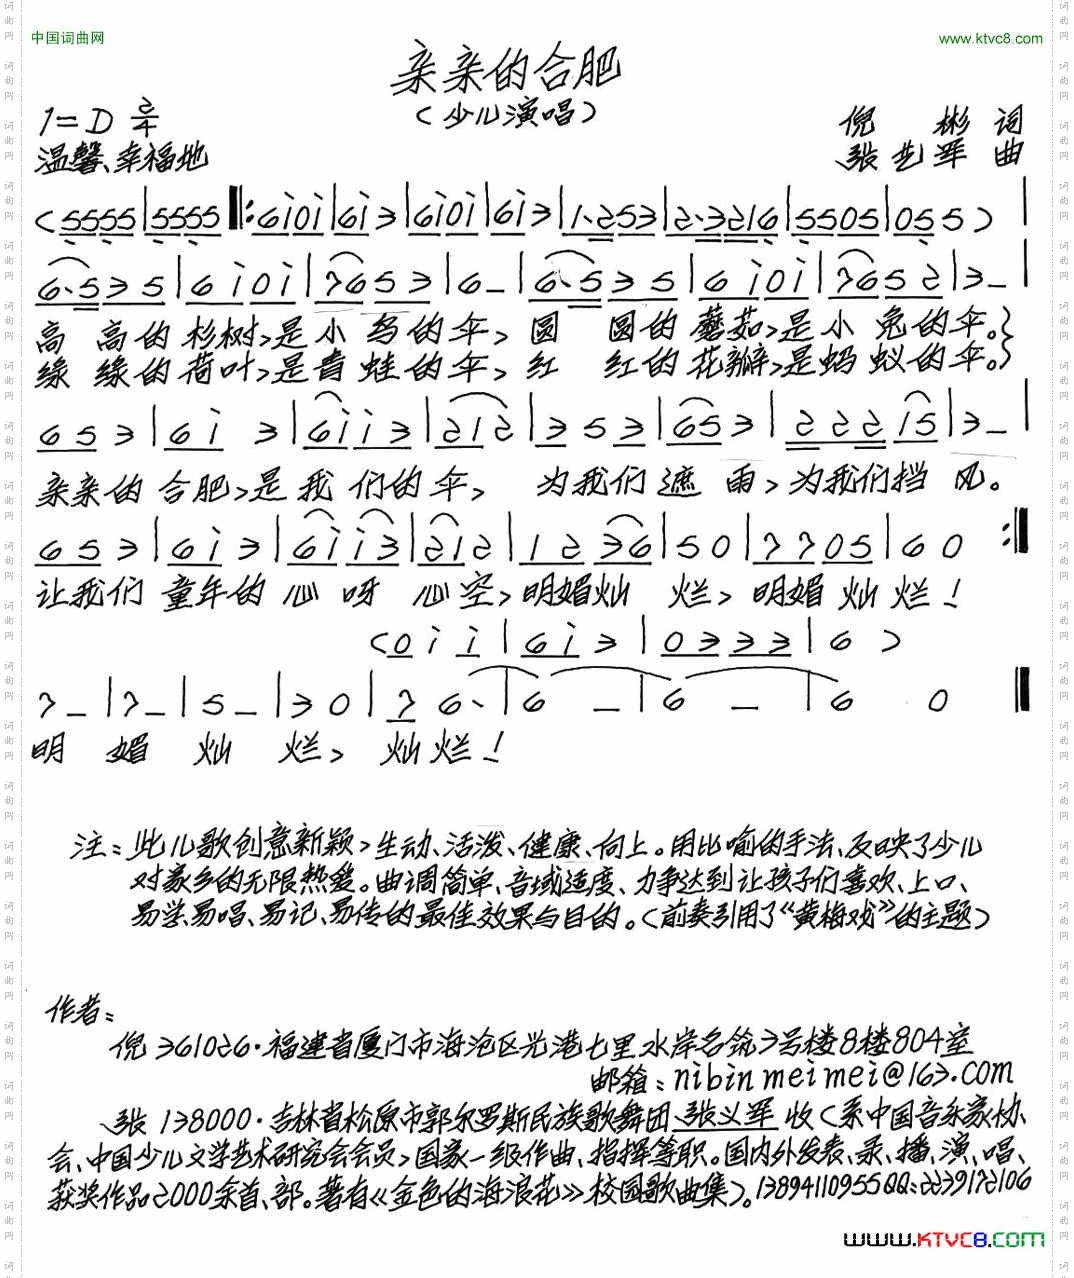 中国词曲网
www.ktvc8.com
亲亲的合肥
(少儿演唱)
1=D 2/4
倪 彬 词
温馨、幸福地
张艺军 曲
(5555|5555‖:6i0i|6i3|6i0i|6i3|1·253|2·3216|5505|055)|
6·535|6i0i|7653|6-|6·535|6i0i|7652|3-|
高 高的杉树,是小鸟的伞,圆 圆的蘑菇,是小兔的伞。}
绿 绿的荷叶,是青蛙的伞,红 红的花瓣,是蚂蚁的伞。}
653|6i3|6ii3|212|353|653|22215|3-|
亲亲的合肥,是我们的伞, 为我们遮雨,为我们挡风。
653|6i3|6ii3|212|1236|50|7705|60:‖
让我们童年的心呀心空,明媚灿烂,明媚灿烂!
(0ii|6i3|0333|6)
7-|7-|5-|30|76·|6-|6-|60‖
明媚灿烂,灿烂!
注:此儿歌创意新颖,生动、活泼、健康、向上。用比喻的手法、反映了少儿
对家乡的无限热爱。曲调简单、音域适度、力争达到让孩子们喜欢、上口、
易学、易唱、易记、易传的最佳效果与目的。(前奏引用了《黄梅戏》的主题)
作者:
倪 361026·福建省厦门市海沧区兴港七里水岸名筑3号楼8楼804室
邮箱:nibinmeimei@163.com
张 138000·吉林省松原市郭尔罗斯民族歌舞团张义军收(系中国音乐家协
会、中国少儿文学艺术研究会会员,国家一级作曲、指挥等职。国内外发表、录、播、演、唱、
获奖作品2000余首、部。著有《金色的海浪花》校园歌曲集)。13894110955QQ:2239172106
www.KTVC8.com